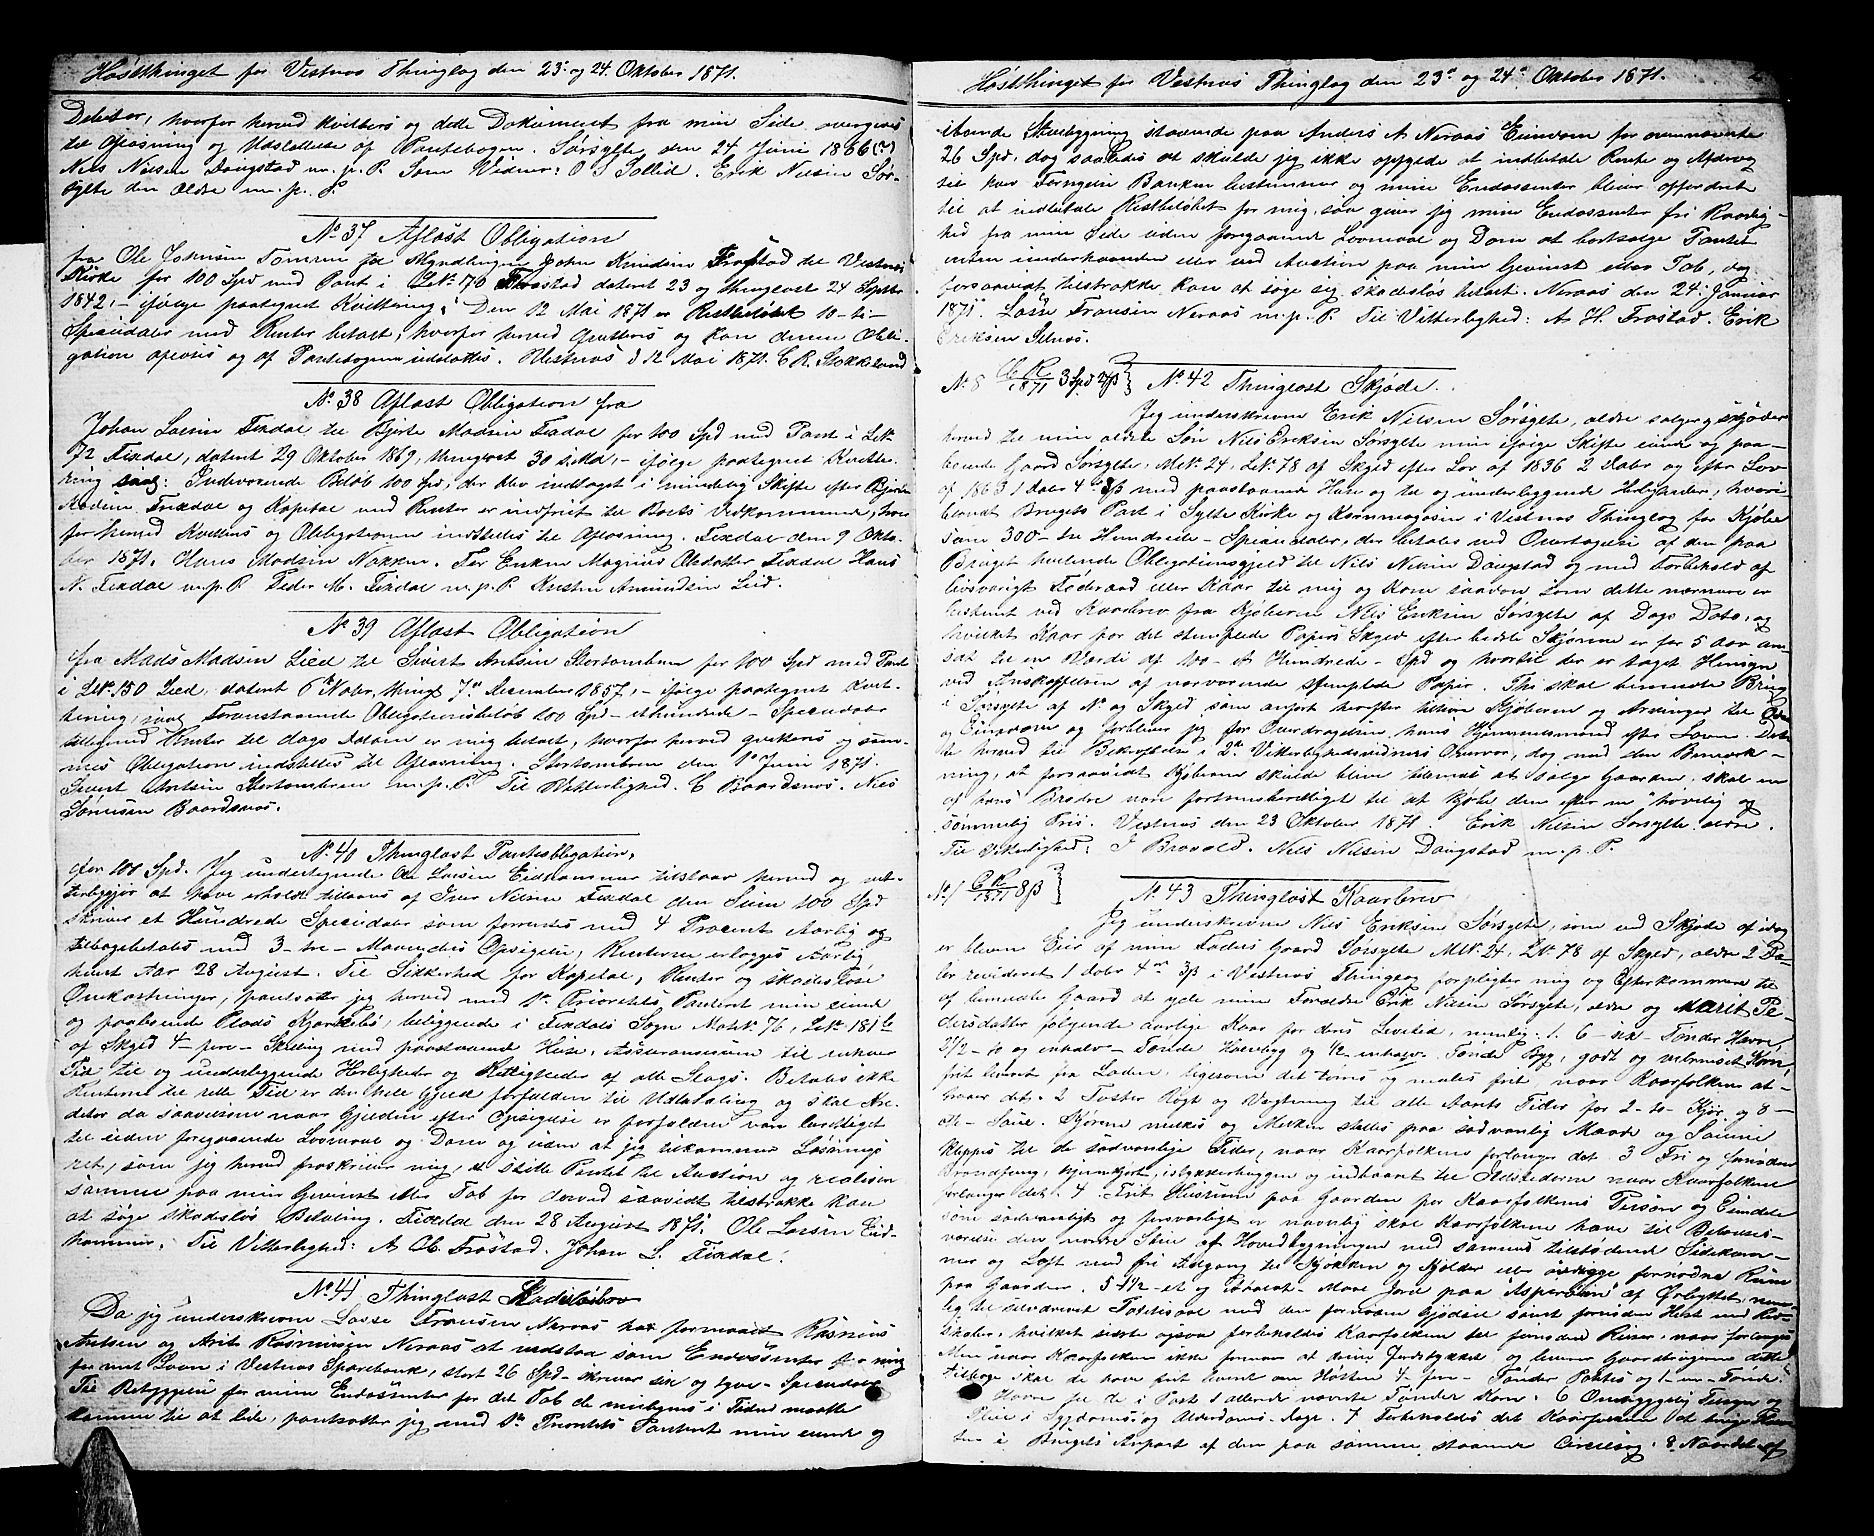 Høstthinget for Vestnes Thinglag den 23de og 24. Oktober 1871.
Debitor, hvorfor herved kvitteres og dette Dokument fra min Side overgives
til Aflæsning og Udslettelse af Pantebogen. Sørsylte den 24 Juni 1866(?)
Nils Nielsen Daugstad m. p. P. Som Vidner: O S Sollid. Erik Nilsen Sør-
sylte den Ældre m. p. P.
No 37 Aflæst Obligation
fra Ole Johnsen Tomren for Myndlingen John Knudsen Frostad til Vestnes
Kirke for 100 Spd med Pant i LNo 70 Frostad dateret 23 og thinglæst 24 Septbr
1842, - ifølge paategnet Kvittering: Den 12 Mai 1871 er Restbeløbet 10 - ti -
Speciedaler med Renter betalt, hvorfor herved qvitteres og kan denne Obli-
gation aflæses og af Pantebogen udslettes. Vestnes d 12 Mai 1871. C R. Stokkeland
No 38 Aflæst Obligation fra
Johan Larsen Fixdal til Bjerte Madsen Fixdal for 100 Spd med Pant i LNo
72 Fixdal, dateret 29 Oktober 1869, thinglæst 30 s. Md, - ifølge paategnet Kvitte-
ring saal: Indeværende Beløb 100 Spd, der blev indtaget i mindelig Skifte efter
Madsen Fixdal og Kapital med Renter er indfriet til Boets Vedkommende, hvor
for herved kvitteres og Obligationen indstilles til Aflæsning. Fixdal den 9 Okto-
ber 1871. Hans Madsen Nakken. For Enken Magnus Olsdatter Fixdal Hans
N. Fixdal m. p. P. Peder M. Fixdal m. p. P. Kristen Amundsen Leid.
No 39 Aflæst Obligation
fra Mads Madsen Lied til Sivert Antsen Stortomren for 100 Spd med Pant
i LNo 150 Lied, dateret 6te Novbr, thingl 7de December 1857, - ifølge paategnet Kvit-
tering, saal Foranstaaende Obligationsbeløb 100 Spd - ethundrede - Speciedaler
tilligemed Renter til dags Datum er mig betalt, hvorfor herved qvitteres og sam-
mes Obligation indstilles til Aflæsning. Stortomren den 1e Juni 1871.
Sivert Antsen Stortomren m. p. P. Til Vitterlighed. C Baardsnes. Nils
Sørensen Baardsnes.
No 40 Thinglæst Panteobligation,
for 100 Spd. Jeg undertegnede Ole Larsen Eidhammer tilstaar herved og vit-
terliggjør at have erholdt tillaans af Iver Nilsen Fixdal den Sum 100 Spd
skriver et Hundrede Speciedaler som forrentes med 4 Procent Aarlig og
tilbagebetales med 3 - tre - Maaneders Opsigelse, Renterne erlægges Aarlig
hvert Aar 28 August. Til Sikkerhed for Kapital, Renter og skadesløse
Omkostninger, pantsætter jeg herved med 1e Prioritets Panteret min eiende
og paaboende Plads Kjorsbø, beliggende i Fixdals Sogn Matr. No 76, LNo 181b
af Skyld 4 - fire - Skilling med paastaaende Huse, Assurancesum til enhver
Tid til og underliggende Herligheder og Rettigheder af alle Slags. Betales ikke
Renterne til rette Tid er den hele Gjeld forfalden til Udbetaling og skal Kre-
ditor da saavelsom naar Gjælden efter Opsigelse er forfalden være berettiget
til uden foregaaende Lovmaal og Dom og uden at jeg tilkommer Løsnings
ret, som jeg herved fraskriver mig, at stille Pantet til Auction og realisere
samme paa min Gevinst eller Tab for derved saavidt tilstrække kan
at søge skadesløs Betaling. Fixdal den 28 August 1871. Ole Larsen Eid-
hammer. Til Vitterlighed: A Ol. Frostad. Johan L. Fixdal.
No 41 Thinglæst Skadesløsbrev
Da jeg underskrevne Lasse Fransen Neraas har formaaet Rasmus
Antsen og Arit Rasmusson Neraas at udstaa som Endossenter for mig
for mit Laan i Vestnes Sparebank, stort 26 Spd - skriver sex og tyve - Speciedaler
Til Betryggelse for mine Endossenter for det Tab de muligens i Tiden maatte
komme til at lide, pantsætter jeg med 1e Prioritets Panteret min eiende og
Høstthinget for Vestnes Thinglag den 23de og 24de Oktober 1871.
iboende Stuebygning staaende paa Anders A Neraas Eiendom for ovennævnte
26 Spd, dog saaledes at skulde jeg ikke opfylde at indbetale Rente og Afdrag
til hver Termin Banken bestemmer og mine Endossenter bliver opfordret
til at indbetale Restbeløbet for mig, saa giver jeg mine Endossenter fri Raadig-
hed fra min Side uden foregaaende Lovmaal og Dom at bortsælge Pantet
enten underhaanden eller ved Auction paa min Gevinst eller Tab, og
forsaavidt tilstrække kan at søge sig skadesløs betalt. Neraas den 24. Januar
1871. Lasse Fransen Neraas m. p. P. Til Vitterlighed: A H. Frostad. Erik
Eriksen Selnes.
No 8 CR/1871 3 Spd 24β No 42 Thinglæst Skjøde.
Jeg underskrevne Erik Nilsen Sørsylte, ældre sælger og skjøder
herved til min ældste Søn Nils Eriksen Sørsylte min ifølge Skifte eiende og paa-
boende Gaard Sørsylte, MNo 24, LNo 78 af Skyld efter Lov af 1836 2 Daler og efter Lov
af 1863 1 Daler 4 ort 3β med paastaaende Huse og til og underliggende Herligheder, hvori-
blandt Brugets Part i Sylte Kirke og Kornmagasin i Vestnes Thinglag for Kjøbe
sum 300 - tre Hundrede - Speciedaler, der betales ved Overtagelse af den paa
Bruget heftende Obligationsgjeld til Nils Nilsen Daugstad og med Forbehold af
livsvarigt Føderaad eller Kaar til mig og Kone saavel som dette nærmere er
bestemt ved Kaarbrev fra Kjøberen Nils Eriksen Sørsylte af Dags Dato, og
hvilket Kaar for det stemplede Papirs Skyld efter bedste Skjønne er for 5 Aar an-
sat til en Værdi af 100 - et Hundrede - Spd og hvortil der er taget Hensyn
ved Anskaffelsen af nærværende stemplede Papir. Thi skal benævnte Brug
i Sørsylte af No og Skyld som anført herefter tilhøre Kjøberen og Arvinger til Odel
og Eiendom og forbliver jeg for Overdragelsen hans Hjemmelsmand efter Loven. Dette
til herved til Bekræftelse i 2de Vitterlighedsvidners Overvær, dog med den Bemærk-
ning, at forsaavidt Kjøberen skulde blive tilsinds at sælge Gaarden, skal en
af hans Brødre være fortrinsberettiget til at kjøbe den efter en høvelig og
sømmelig Pris. Vestnes den 23 Oktober 1871. Erik Nilsen Sørsylte ældre.
Til Vitterlighed: J Bravold. Nils Nilsen Daugstad m. p. P.
No 1 CR/1871 8β No 43 Thinglæst Kaarbrev
Jeg underskrevne Nils Eriksen Sørsylte, som ved Skjøde af idag
er bleven Eier af min Faders Gaard Sørsylte MNo 24, LNo 78 af Skyld, ældre 2 Da-
ler revideret 1 Daler 4 ort 3β i Vestnes Thinglag forpligter mig og Efterkommere til
af benævnte Gaard at yde mine Forældre Erik Nilsen Sørsylte, ældre og Marit Pe-
dersdatter følgende aarlige Kaar for deres Levetid, nemlig: 1. 6 - sex - Tønder Havre,
2 1/2 - to og enhalv - Tønde Havrebyg og 1/2 - enhalv - Tønde Byg, godt og velrenset Korn,
frit leveret fra Laden, ligesom det tørres og males frit, naar Kaarfolkene at-
traar det. 2 Foster Røgt og Vogtning til alle Aarets Tider for 2 - to - Kjør og 8 -
otte - Sauer. Kjørene melkes og Melken stelles paa sædvanlig Maade og Sauerne
klippes til de sædvanlige Tider, naar Kaarfolkene forlanger det. 3 Fri og fornøden
Brændfang, hjemkjørt, istykkerhuggen og indbaaret til Ildstederne naar Kaarfolkene
forlanger det. 4 Frit Husrum paa Gaarden for Kaarfolkenes Person og Eiendele
som sædvanligt og forsvarligt er navnlig skal Kaarfolkene have til Beboelses-
værelse den nordre Stue af Hovedbygningen med sammes tilstødende Sidekam-
mer og Loft med fri Adgang til Kjøkken og Kjelder eller øvrige fornødne Rum
paa Gaarden. 5 1 1/2 - et og et halvt - Maal Jord paa "Asperøien" af Ørbylket nem-
lig til Potetesæd med den fornødne Gjødsel samt fornøden Hest med Red-
skaber, hvilket sidste ogsaa forbeholdes Kaarfolkene til fornøden Reiser, naar forlanges.
Men naar Kaarfolkene ikke formaar at drive Jordstykket og leverer Gaardbrugeren dette
tilbage skal de have frit leveret om Høsten 4 - fire - Tønder Potetes og 1 - en - Tønde
Havre for de i Post 1 allerede nævnte Tønder Korn. 6 Omhyggelig Tilsyn og
Pleie i Sygdoms og Alderdoms Dage. 7 Forbeholdes det Kaarfolkene at bruge
i Brugets Anpart af den paa samme staaende Cirkelsag. 8 Naar det af